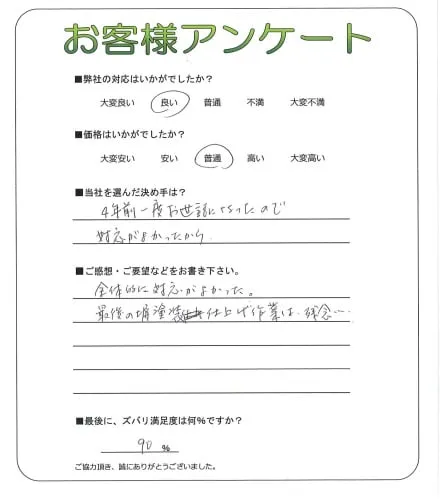 お客様アンケート
■弊社の対応はいかがでしたか？
大変良い 良い 普通 不満 大変不満
■価格はいかがでしたか？
大変安い 安い 普通 高い 大変高い
■当社を選んだ決め手は？
4年前一度お世話になったので
対応がよかったから
■ご感想・ご要望などをお書き下さい。
全体的に対応がよかった。
最後の塀塗装仕上げ作業は、残念…
■最後に、ズバリ満足度は何％ですか？
90 %
ご協力頂き、誠にありがとうございました。